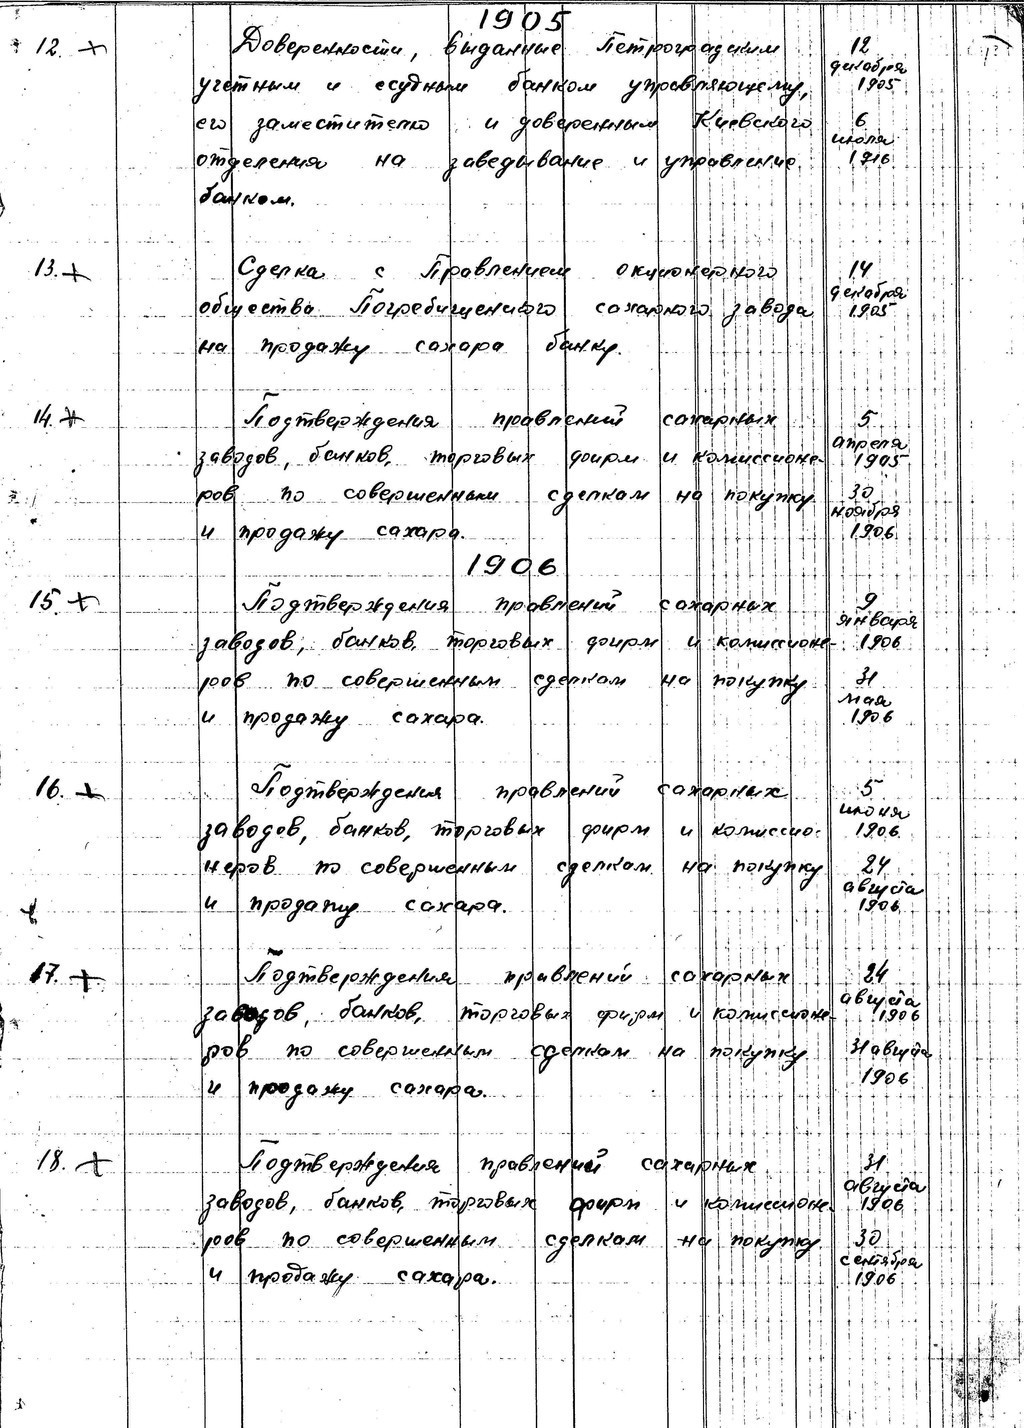 1905
12. + Доверенности, выданные Петроградским 12 декабря
учетным и ссудным банком управляющему, 1905
его заместителю и доверенным Киевского 6 июля
отделения на заведывание и управление 1916
банком.
13. + Сделка с Правлением акционерного 14 декабря
общества Погребищенского сахарного завода 1905
на продажу сахара банку.
14. + Подтверждения правлений сахарных 5 апреля
заводов, банков, торговых фирм и комиссионе- 1905
ров по совершенным сделкам на покупку 30 ноября
и продажу сахара. 1906
1906
15. + Подтверждения правлений сахарных 9 января
заводов, банков, торговых фирм и комиссионе- 1906
ров по совершенным сделкам на покупку 31 мая
и продажу сахара. 1906
16. + Подтверждения правлений сахарных 5 июня
заводов, банков, торговых фирм и комиссио- 1906
неров по совершенным сделкам на покупку 24 августа
и продажу сахара. 1906
17. + Подтверждения правлений сахарных 24 августа
заводов, банков, торговых фирм и комиссионе- 1906
ров по совершенным сделкам на покупку 31 августа
и продажу сахара. 1906
18. + Подтверждения правлений сахарных 31 августа
заводов, банков, торговых фирм и комиссионе- 1906
ров по совершенным сделкам на покупку 30 сентября
и продажу сахара. 1906